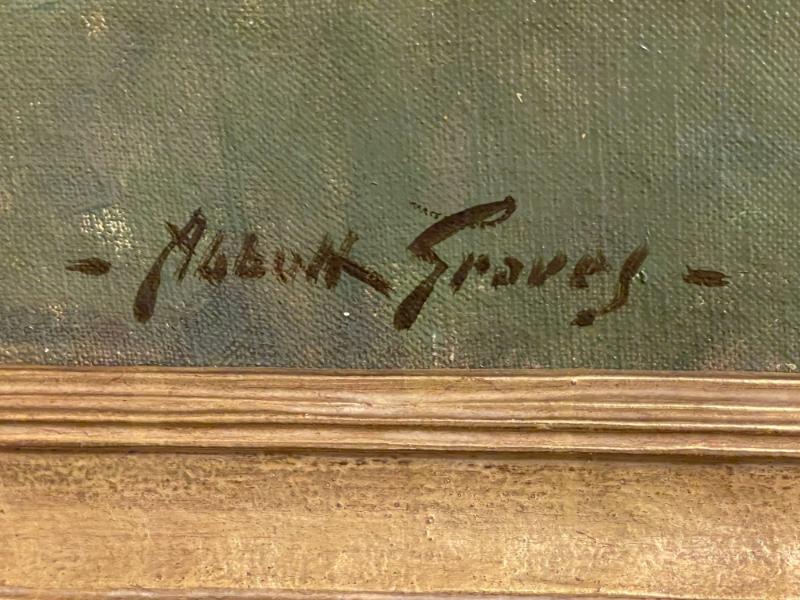 - Abbott Graves -